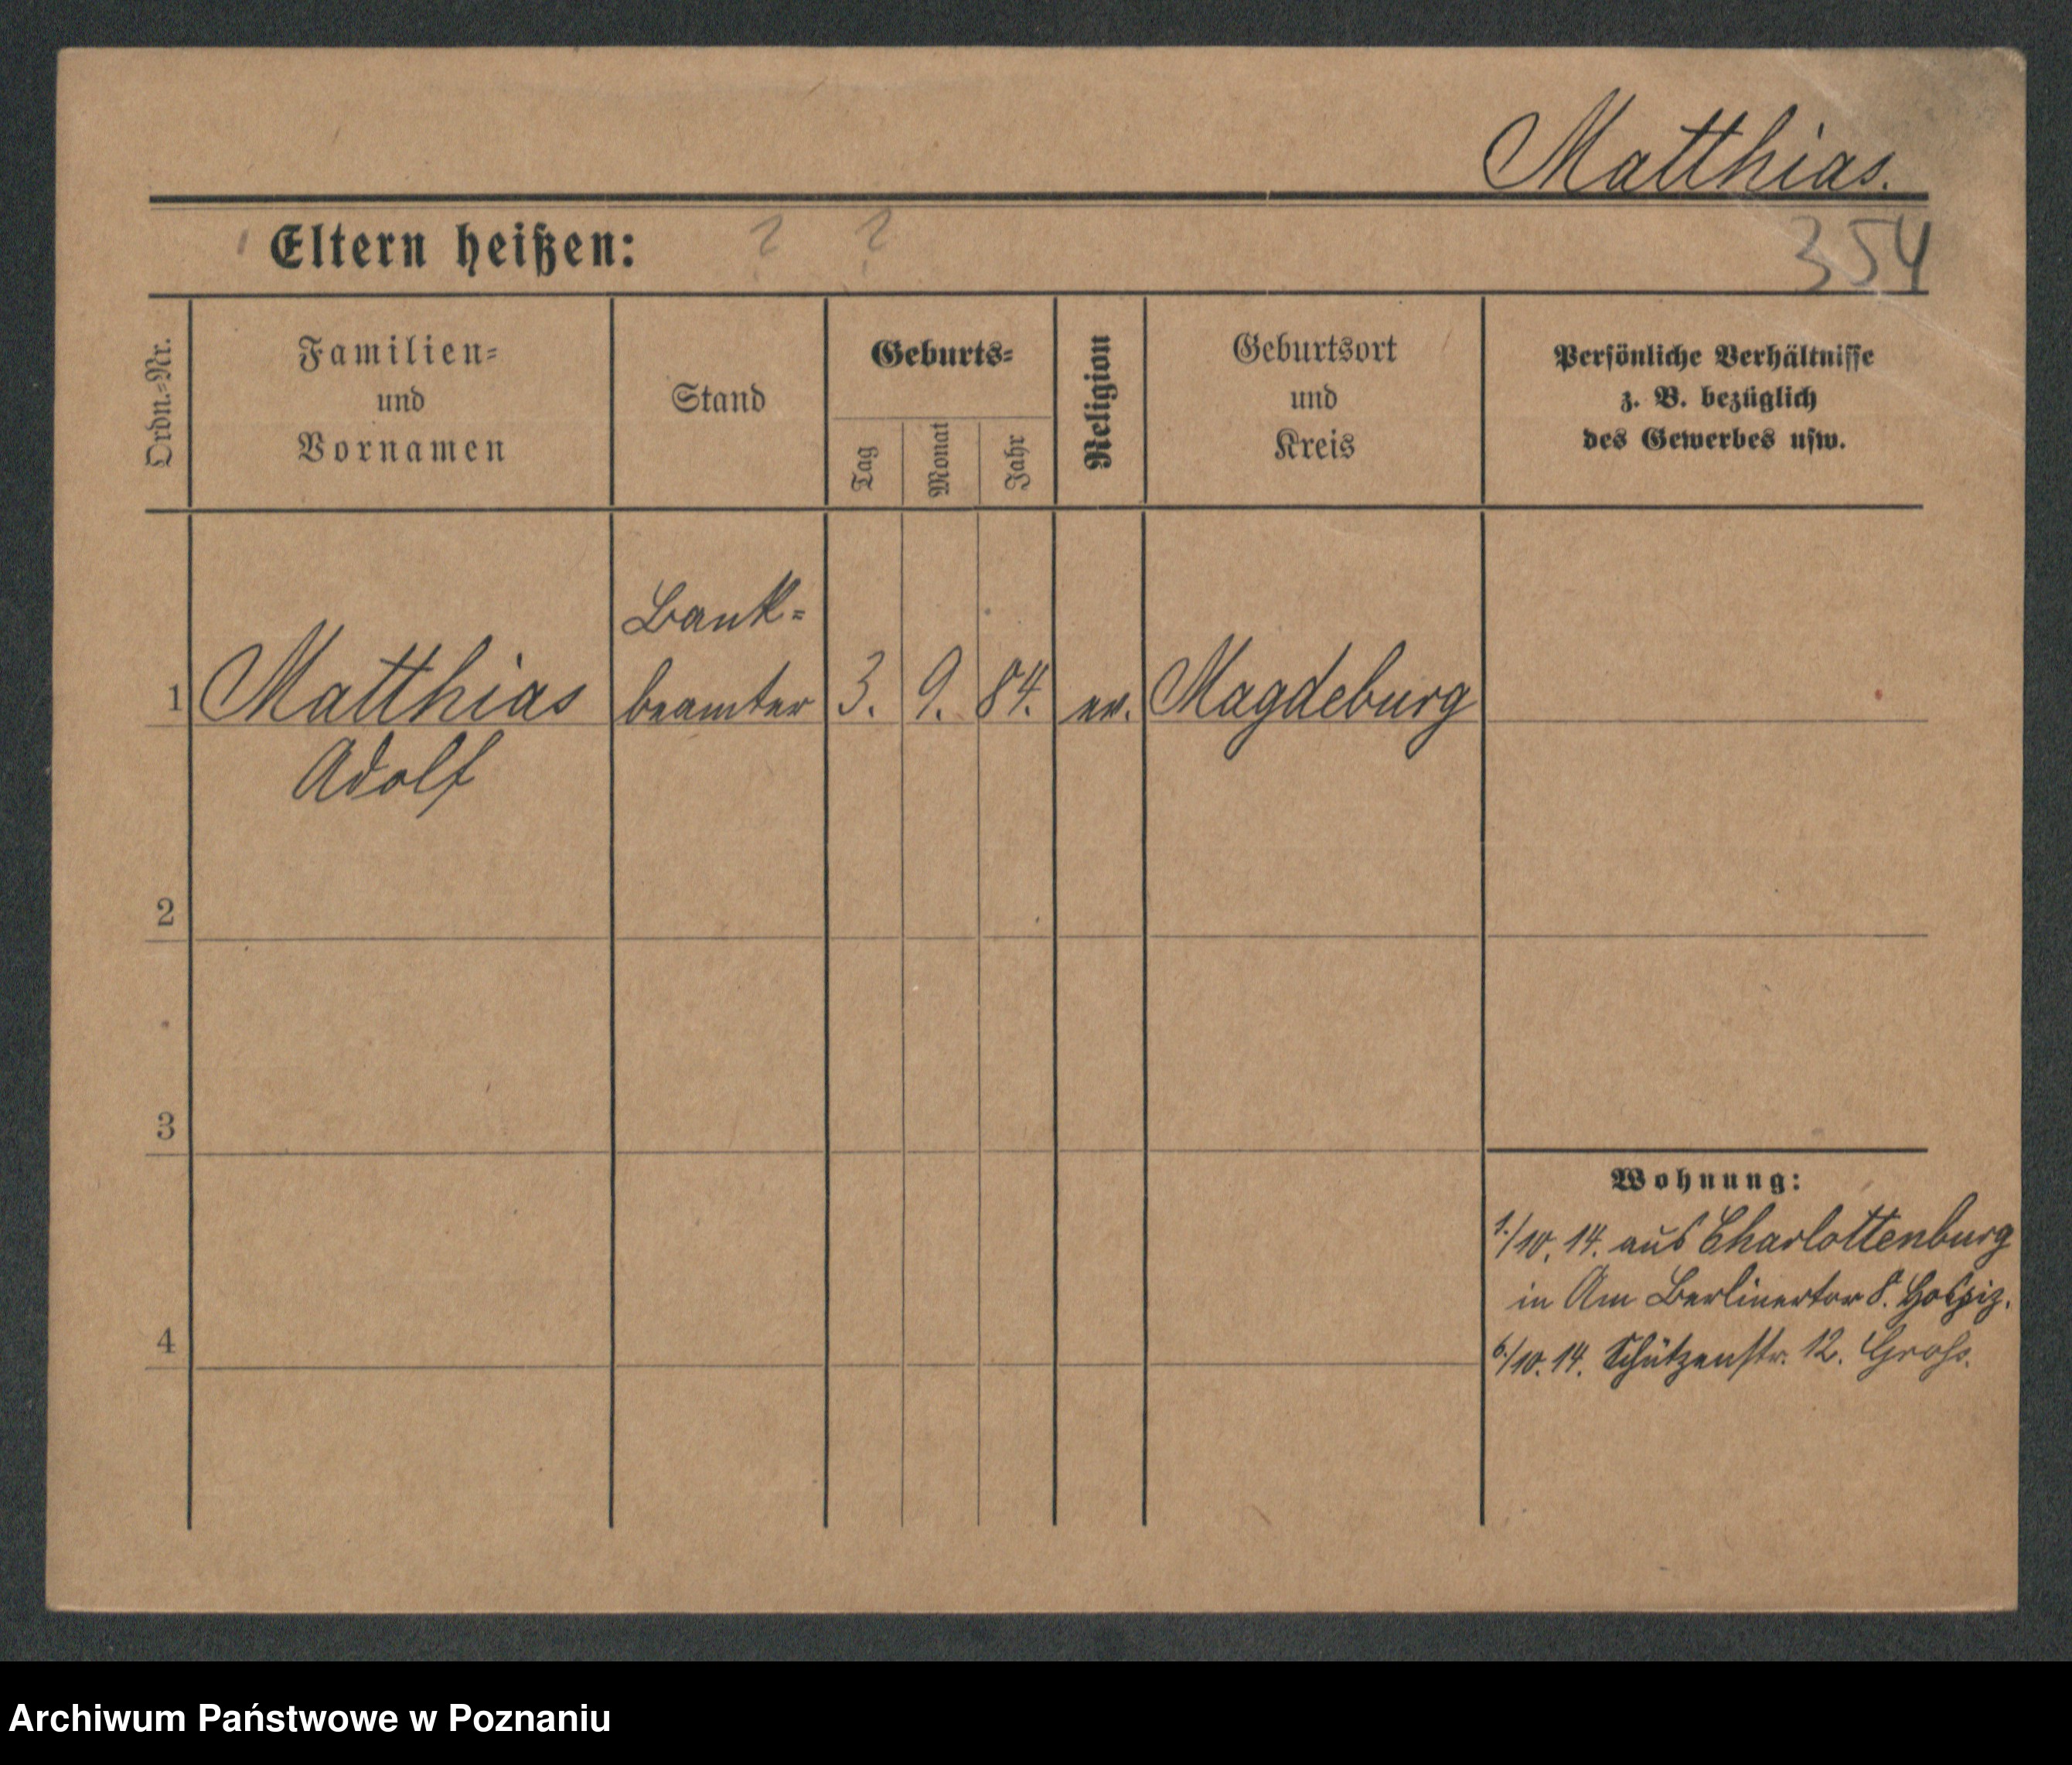 Matthias.
Eltern heißen: ? ?
354
Ordn.=Nr.
Familien=
und
Vornamen
Stand
Geburts=
Tag
Monat
Jahr
Religion
Geburtsort
und
Kreis
Persönliche Verhältnisse
z. B. bezüglich
des Gewerbes usw.
Bank=
1 Matthias beamter 3. 9. 84. ev. Magdeburg
Adolf
2
3
Wohnung:
1./10. 14. aus Charlottenburg
in Am Berlinertor 8. Hospiz.
4
6./10. 14. Schützenstr. 12. Gross.
Archiwum Państwowe w Poznaniu